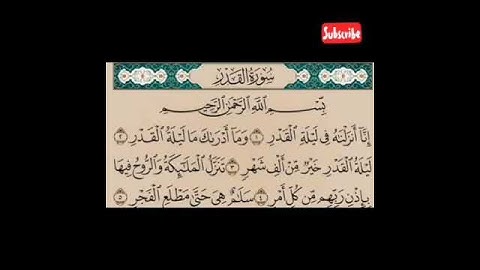 Subscribe
سُورَةُ الْقَدْرِ
بِسْمِ اللَّهِ الرَّحْمَٰنِ الرَّحِيمِ
إِنَّا أَنزَلْنَٰهُ فِى لَيْلَةِ الْقَدْرِ ١ وَمَا أَدْرَىٰكَ مَا لَيْلَةُ الْقَدْرِ ٢
لَيْلَةُ الْقَدْرِ خَيْرٌ مِّنْ أَلْفِ شَهْرٍ ٣ تَنَزَّلُ الْمَلَٰٓئِكَةُ وَالرُّوحُ فِيهَا
بِإِذْنِ رَبِّهِم مِّن كُلِّ أَمْرٍ ٤ سَلَٰمٌ هِىَ حَتَّىٰ مَطْلَعِ الْفَجْرِ ٥